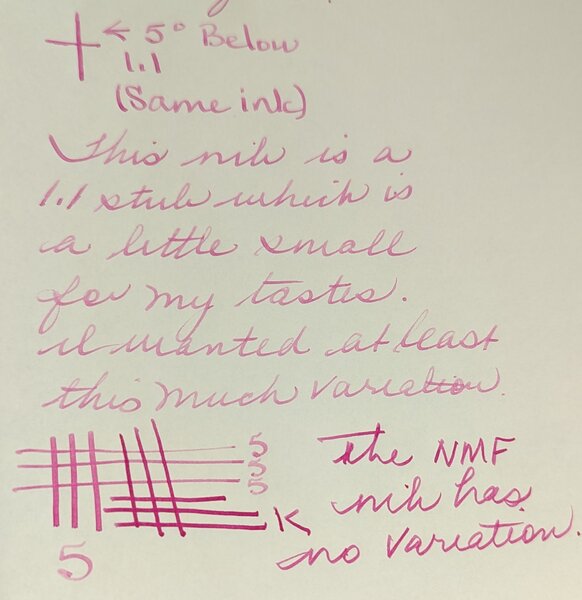 ← 5° Below
1.1
(Same ink)
This nib is a
1.1 stub which is
a little small
for my tastes.
I wanted at least
this much variation.
5
5
5
K
5
The NMF
nib has
no variation.